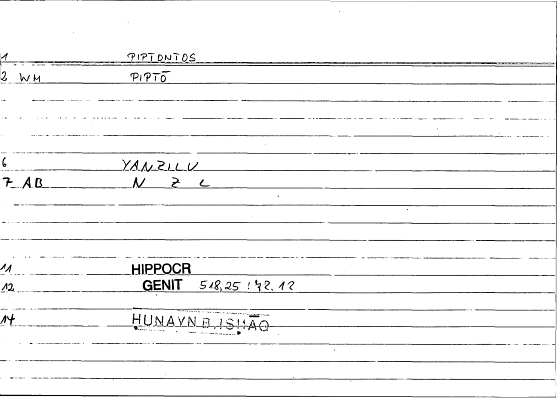 1 PIPTONTOS
2 WM PIPTŌ
6 YANZILU
7 AB N Z L
11 HIPPOCR
12 GENIT 518,25 : 42.12
14 ḤUNAYN B. ISḤĀQ